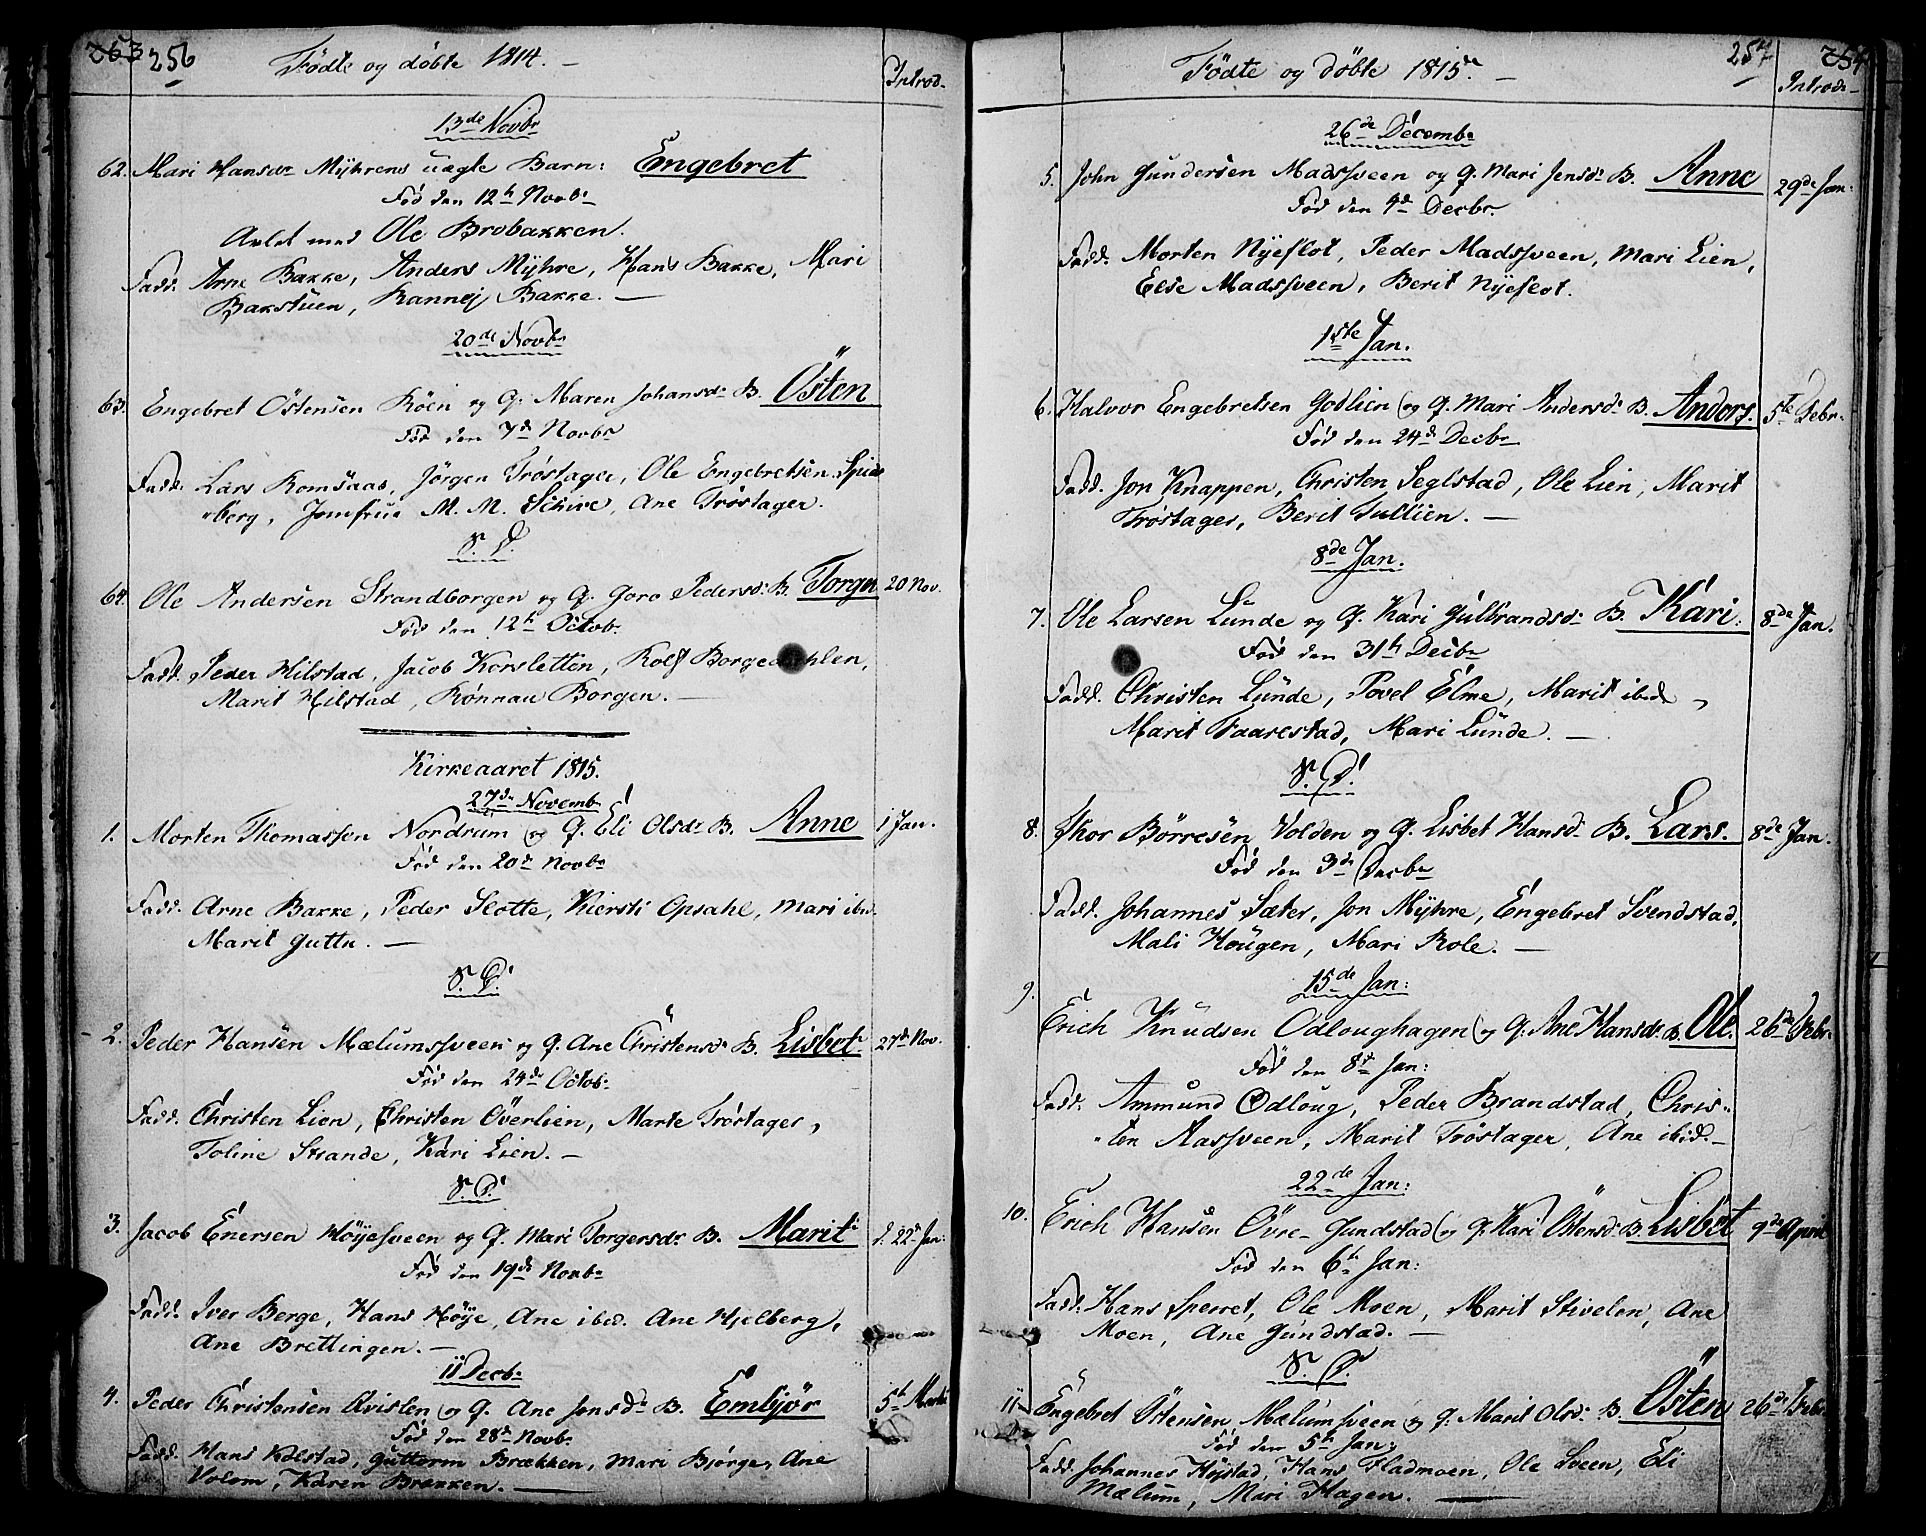 263 256 Fødte og døbte 1814. – Introd.
13de Novbr
62. Mari Hansdr Myhrens uægte Barn: Engebret
Fød den 12te Novbr
Avlet med Ole Brobakken.
Fadd. Arne Bakke, Anders Myhre, Hans Bakke, Mari
Bakstuen, Rannej Bakke. –
20de Novbr
63. Engebret Östensen Röen og H. Maren Johansdr B. Östen
Fød den 7de Novbr
Fadd. Lars Romsaas, Jörgen Tröstager, Ole Engebretsen
berg, Jomfrue M. M. Schive, Ane Tröstager.
S. D.
64. Ole Andersen Strandborgen og H. Goro Pedersdr B. Torger 20 Nov.
Fød den 12te Octob.
Fadd. Peder Hilstad, Jacob Korsletten, Rolf
Marit Hilstad, Rönnau Borgen. –
Kirkeaaret 1815.
27de Novemb
1. Morten Thomassen Nordrum og H. Eli Olsdr B. Anne 1 Jan.
Fød den 20de Novbr
Fadd. Arne Bakke, Peder Slotte, Kiersti Opsahl, Mari ibid.
Marit Guttu. –
S. D.
2. Peder Hansen Mælumssveen og H. Ane Christensdr B. Lisbet 27de Nov.
Fød den 24de Octob.
Fadd. Christen Lien, Christen Överlien, Marte Tröstager,
Toline Strande, Kari Lien. –
S. D.
3. Jacob Enersen Höyesveen og H. Mari Torgersdr B. Marit d. 22de Jan:
Fød den 19de Novbr
Fadd. Iver Berge, Hans Höye, Ane ibid. Ane Hjelberg,
Ane Brettingen. –
11 Decbr
4. Peder Christensen Qvislen og H. Ane Jonsdr B. Embjör 5te Marti
Fød den 28de Novbr
Fadd. Hans Kolstad, Guttorm Brækken, Mari Björge, Ane
Volom, Karen Brækken. –
Fødte og döbte 1815de – 257 254 Introd. –
26de Decembr
5. John Gundersen Madssveen og H. Mari Jensdr B. Anne 29de Jan:
Fød den 9de Decbr.
Fadd. Morten Nyeslot, Peder Madssveen, Mari Lien,
Else Madssveen, Berit Nyeslot.
1ste Jan.
6. Halvor Engebretsen Godlien og H. Mari Andersdr B. Anders. 5te Febr.
Fød den 24de Decbr
Fadd. Jon Knappen, Christen Seglstad, Ole Lien, Marit
Tröstager, Berit Tullien. –
8de Jan.
7. Ole Larsen Lunde og H. Kari Gulbrandsdr B. Kari. 8de Jan.
Fød den 31te Decbr
Fadd. Christen Lunde, Povel Elme, Marit ibid,
Marit Faarestad, Mari Lunde. –
S. D.
8. Thor Börresen Volden og H. Lisbet Hansdr B. Lars. 8de Jan.
Fød den 3de Decbr
Fadd. Johannes Sæter, Jon Myhre, Engebret Svendstad,
Mali Hougen, Mari Role. –
15de Jan:
9. Erich Knudsen Odloughagen og H. Ane Hansdr B. Ole. 26de Febr.
Fød den 8de Jan:
Fadd. Ammund Odloug, Peder Brandstad, Chris-
ten Aassveen, Marit Tröstager, Ane ibid. –
22de Jan:
10. Erich Hansen Övre-Gundstad og H. Kari Östensdr B. Lisbet 9de April
Fød den 6te Jan:
Fadd. Hans Sperret, Ole Moen, Marit Stivelen, Ane
Moen, Ane Gundstad. –
S. D.
11. Engebret Östensen Mælumsveen og H. Marit Olsdr B. Östen 26de Febr
Fød den 5te Jan:
Fadd. Johannes Höystad, Hans Fladmoen, Ole Sveen, Eli
Mælum, Mari Hagen. –